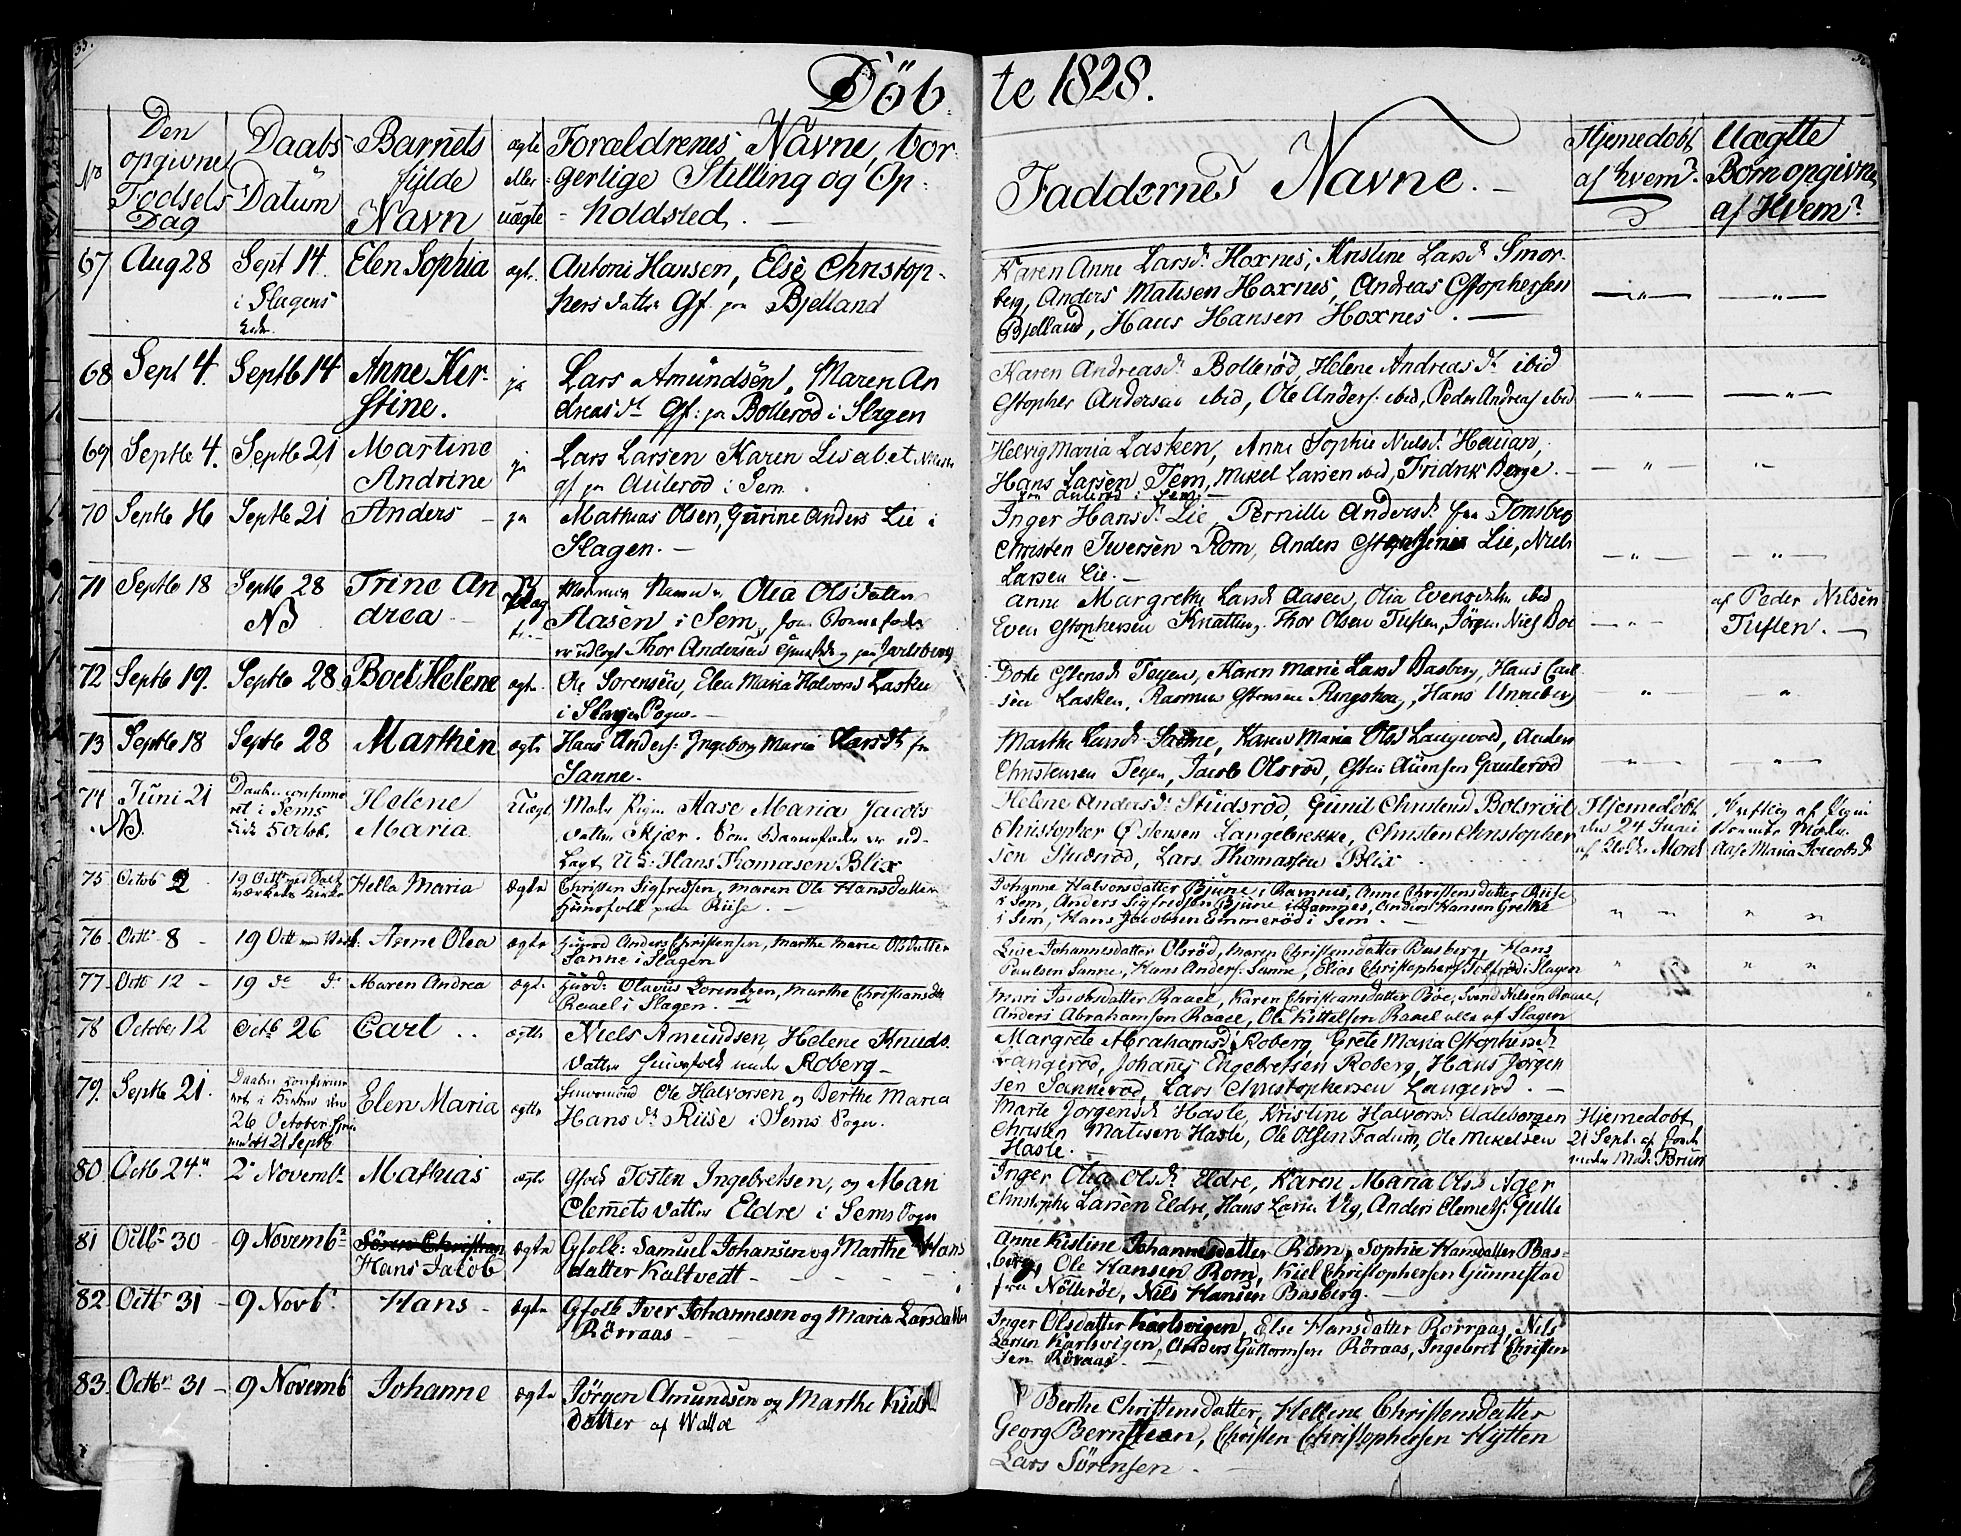 Döb te 1828.
No
Den opgivne Födsels Dag
Daabs Datum
Barnets fulde Navn
ægte eller uægte
Forældrenes Navne, bor-
gerlige Stilling og Op-
holdsted.
Faddernes Navne.
Hjemedöbt af hvem?
Uægte Börn opgivne af Hvem?
67 Aug 28 Sept 14. i Slagens Elen Sophia ægt. Antoni Hansen, Else Christop-
hers datter Gf. paa Bjelland
Karen Anne Larsd. Hoxnes, Kristine Larsd. Smor-
berg, Anders Matisen Hoxnes, Andreas Cstophersen
Bjelland, Hans Hansen Hoxnes.
68 Sept 4. Septb 14 Anne Ker-
stine. ja Lars Amundsen, Maren An
dreasd. Gf: pa Bollerød i Slagen
Karen Andreasd. Bollerød, Helene Andreasd. ibid
Cstopher Andersen ibid, Ole Anders: ibid, Peder Andreas ibid
69 Septb 4. Septb 21 Martine
Andrine ja Lars Larsen Karen Lisabet
gf pa Aulerød i Sem.
Helvig Maria Lasken, Anne Sophie Nielsd. Hauan,
Hans Larsen Tem, Mikel Larsen ibid, Fridrik Berge.
fra Aulerød i Sem
70 Septb 16 Septb 21 Anders ja Mathias Olsen, Gurine Anders Lie i
Slagen.
Inger Hansd. Lie, Pernille Andersd. fra Tonsberg
Christen Iversen Rom, Anders Lie, Niels
Larsen Lie.
71 Septb 18 Septb 28
NB Trine An
drea Moderens Navn Olea Olsdatter
Aasen i Sem, som Barnefader
er udlagt Thor Andersen paa Jarlsberg
Anne Margrethe Larsd. Aasen, Olia Evensdatter ibid
Even Cstophersen Knatting, Thor Olsen Tuften, Jörgen Niels Boe
af Peder Nilsen
Tuften.
72 Septb 19. Septb 28 Boel Helene ægte Ole Sorensen, Elen Maria Halvorsd Lasken
i Slagen Pogn.
Dorte Teyen, Karen Marie Larsd Basberg, Hans Carl-
sen Lasken, Rasmus Ringshoug, Hans Unneberg
73 Septb 18 Septb 28 Mathin ægte Hans Anders: Ingeborg Maria Larsd. fra
Sanne.
Marthe Larsd. Sanne, Karen Maria Olsd Langerød, Anders
Christensen Teyen, Jacob Olsröd, Gauleröd
74 Juni 21
NB. Daaben confirme-
ret i Sems
5 Octob. Helene
Maria Uægt. Moder Pigen Aase Maria Jacobs
datter Skjær. Som Barnefader er ud-
lagt Hans Thomasen Blix
Helene Andersd. Studsröd, Gunil Christensd Bolsröd
Christopher Östensen Langebrekke, Christen Christopher
sen Studsröd, Lars Thomassen Blix.
Hjemedöbt
den 24 Juni
af Monk
Aase Maria Jacobsd
75 Octob 2 19 Octb Hella Maria Ægte Christen Sigfredsen, Maren Ole Hansdatter
Huusfolk paa Riise.
Johanne Halvorsdatter Bjune i Ramnes, Anne Christensdatter Riise
i Sem, Anders Sigfredsen Bjune i Ramnes, Anders Hansen Gretke
i Sem, Hans Jacobsen Emmeröd i Sem.
76 Octbr 8 19 Octb Anne Olea ægte Huusd Anders Christensen, Marthe Marie Olsdatter
Sanne i Slagen
Lise Johannesdatter Olsröd, Maren Christensdatter Basberg, Hans
Paulsen Sanne, Hans Anders: Sanne, Elias Christophers: Tolfsröd i Slagen
77 Octb 12 19 do do Maren Andrea ægte Huusd: Olavus Lorentzen, Marthe Christiansd
Raael i Slagen.
Mari Jacobsdatter Raael, Karen Christiansdatter Böe, Svend Nilsen Raael,
Anders Abrahamsen Raael, Ole Kittelsen Raael alle af Slagen
78 October 12 Octb 26 Carl.. ægte Niels Amundsen, Helene Knuds
datter Huusfolk under Roberg
Margrete Abrahamsd. Roberg, Grete Maria Cstophersd
Langeröd, Johanes Engebretsen Roberg, Hans Jörgen
sen Sanneröd, Lars Christophersen Langeröd.
79. Septb 21. Daaben confirme
ret i Kirken den
26 October
21 Septb Elen Maria ægte Huusmand Ole Halvorsen og Berthe Maria
Hansd. Riise i Sems Sogn.
Marte Jorgensd. Hasle, Kristine Halvorsd. Adeborgen
Christen Matisen Hasle, Ole Olsen Fadum, Ole Mikelsen
Hasle.
Hjemedöbt
21 Sept. af Jord-
moder Mad. Brun
80 Octb 24 2 Novemb Mathias ægte Gfolk Tosten Ingebretsen, og Mari
Clemetsdatter Eldre i Sems Sogn
Inger Olea Olsd. Eldre, Karen Maria Olsd Ager
Christopher Larsen Eldre, Hans Larsen Vig, Anders Clemets: Gulli
81 Octbr 30 9 Novemb Sören Christian
Hans Jacob ægte Gfolk: Samuel Johansen og Marthe Hans
datter Kaltvedt
Anne Kistine Johannesdatter Rom, Sophie Hansdatter Bas-
berg, Ole Hansen Rom, Kiel Christophersen Gunnestad
fra Nötteröe, Nils Hansen Basberg.
82 Octbr 31 9 Novbr Hans ægte Gfolk Iver Johannesen og Maria Larsdatter
Rörraas
Inger Olsdatter Karlsvigen, Else Hansdatter Rorraas, Nils
Larsen Karlsvigen, Anders Guttormsen Röraas, Ingebret Christen
sen Röraas.
83. Octbr 31 9 Novemb Johanne ægte Jörgen Amundsen og Marthe Kiels
datter af Wallö
Berthe Christensdatter, Hellene Christensdatter
Georg Bernstean, Christen Christophersen Hytten
Lars Sörensen.